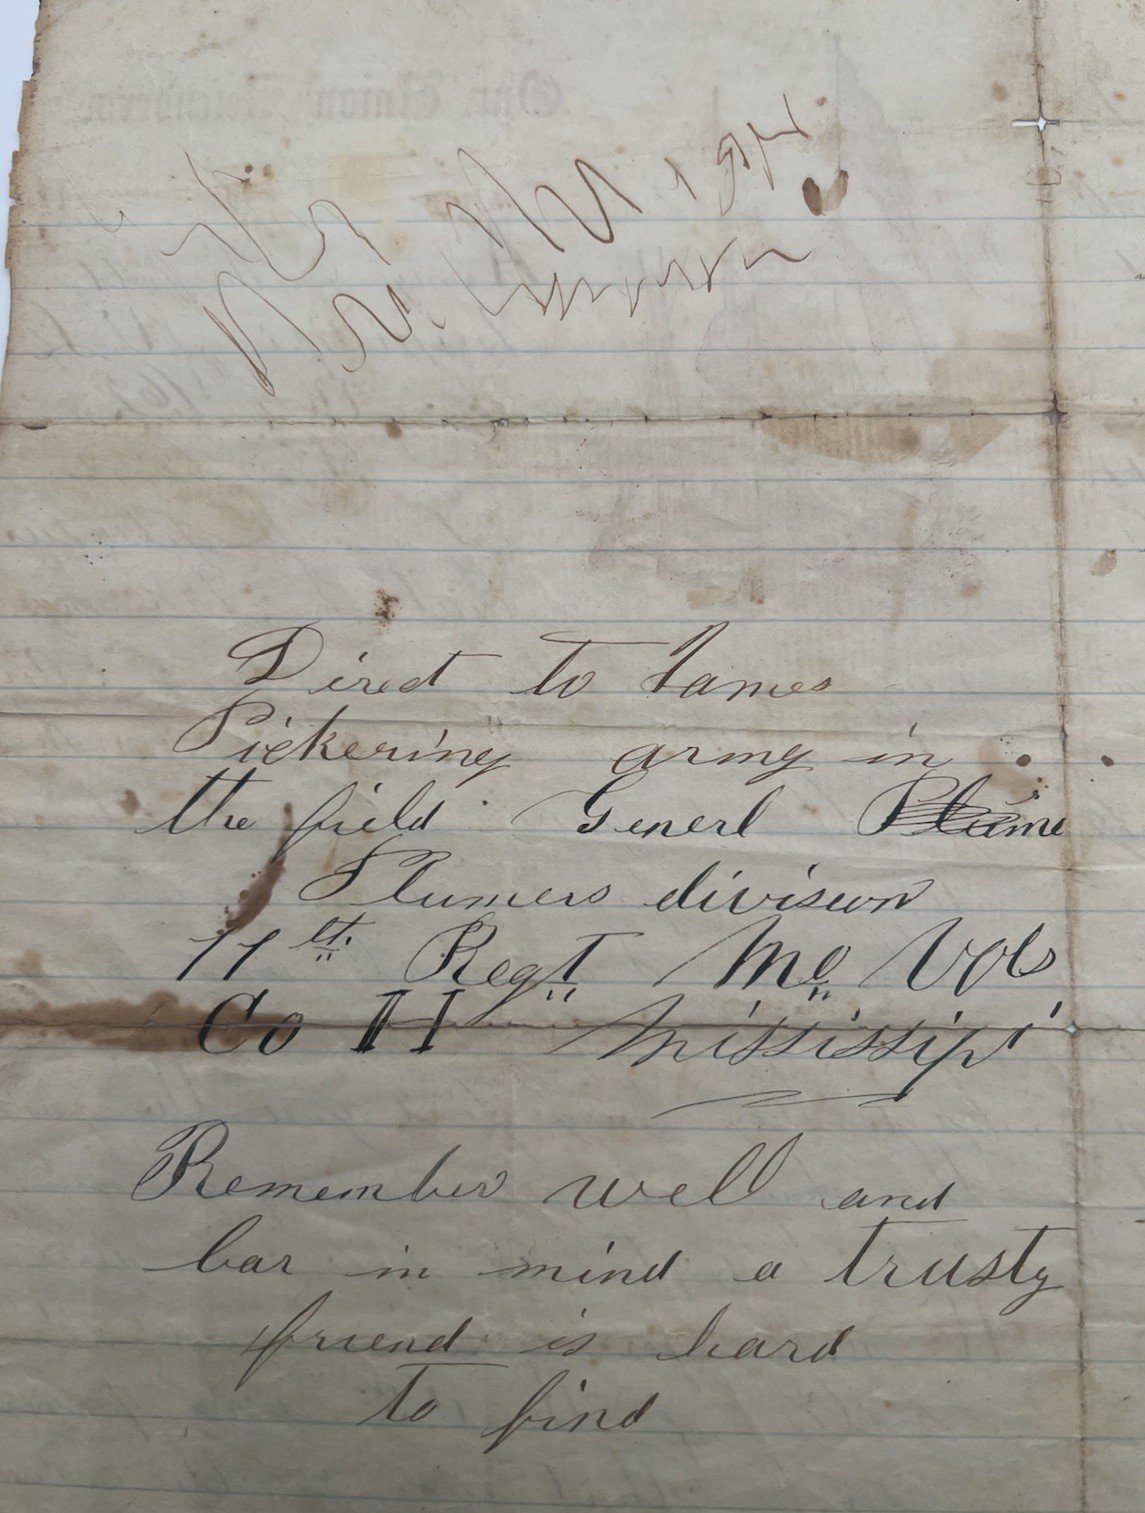 Direct to James
Pickering army in
the field Generl Plume
Plumers division
11th Regt Me Vols
Co H Mississipi
Remember well and
bar in mind a trusty
friend is hard
to find